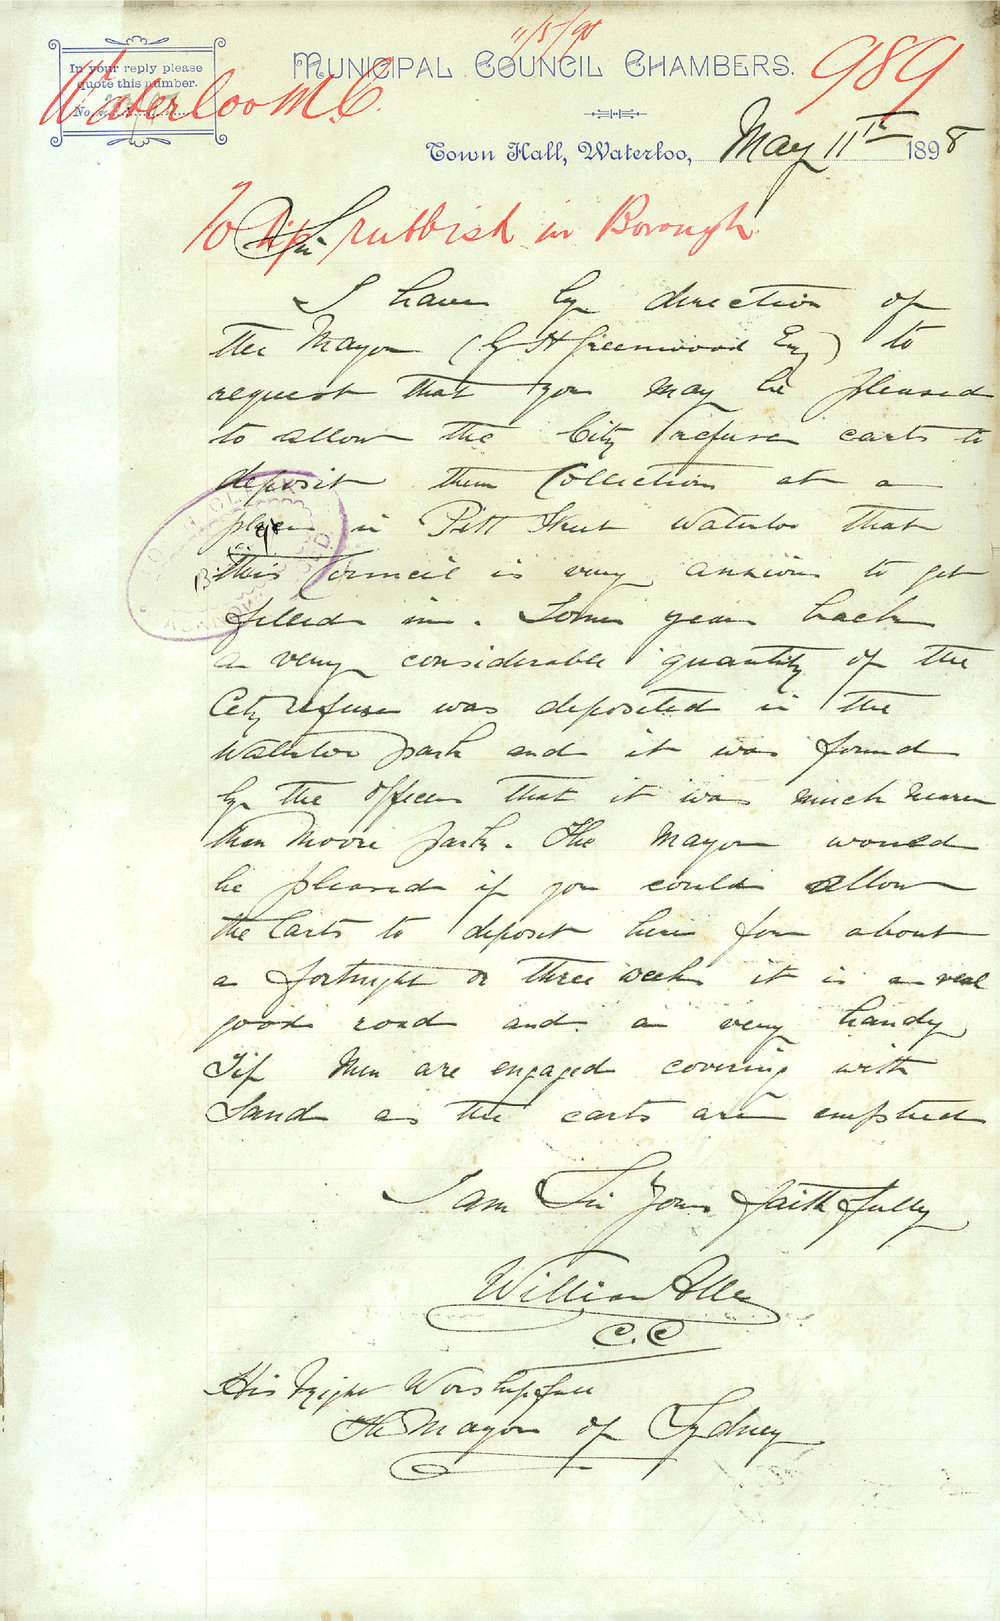 11/5/98
MUNICIPAL COUNCIL CHAMBERS.
989
In your reply please
quote this number.
No
Waterloo M.C.
Town Hall, Waterloo, May 11th 1898
To tip rubbish in Borough
Sir
I have by direction of
the Mayor (G H Greenwood Esq) to
request that you may be pleased
to allow the City refuse carts to
deposit their Collections at a
place in Pitt Street Waterloo that
this Council is very anxious to get
filled in. Some years back
a very considerable quantity of the
City refuse was deposited in the
Waterloo park and it was found
by the Officers that it was much nearer
than Moore Park. The Mayor would
be pleased if you could allow
the Carts to deposit here for about
a fortnight or three weeks it is a real
good road and a very handy
Tip Men are engaged covering with
Sand as the carts are emptied
I am Sir Yours faithfully
William Allen
C.C
His Right Worshipful
The Mayor of Sydney